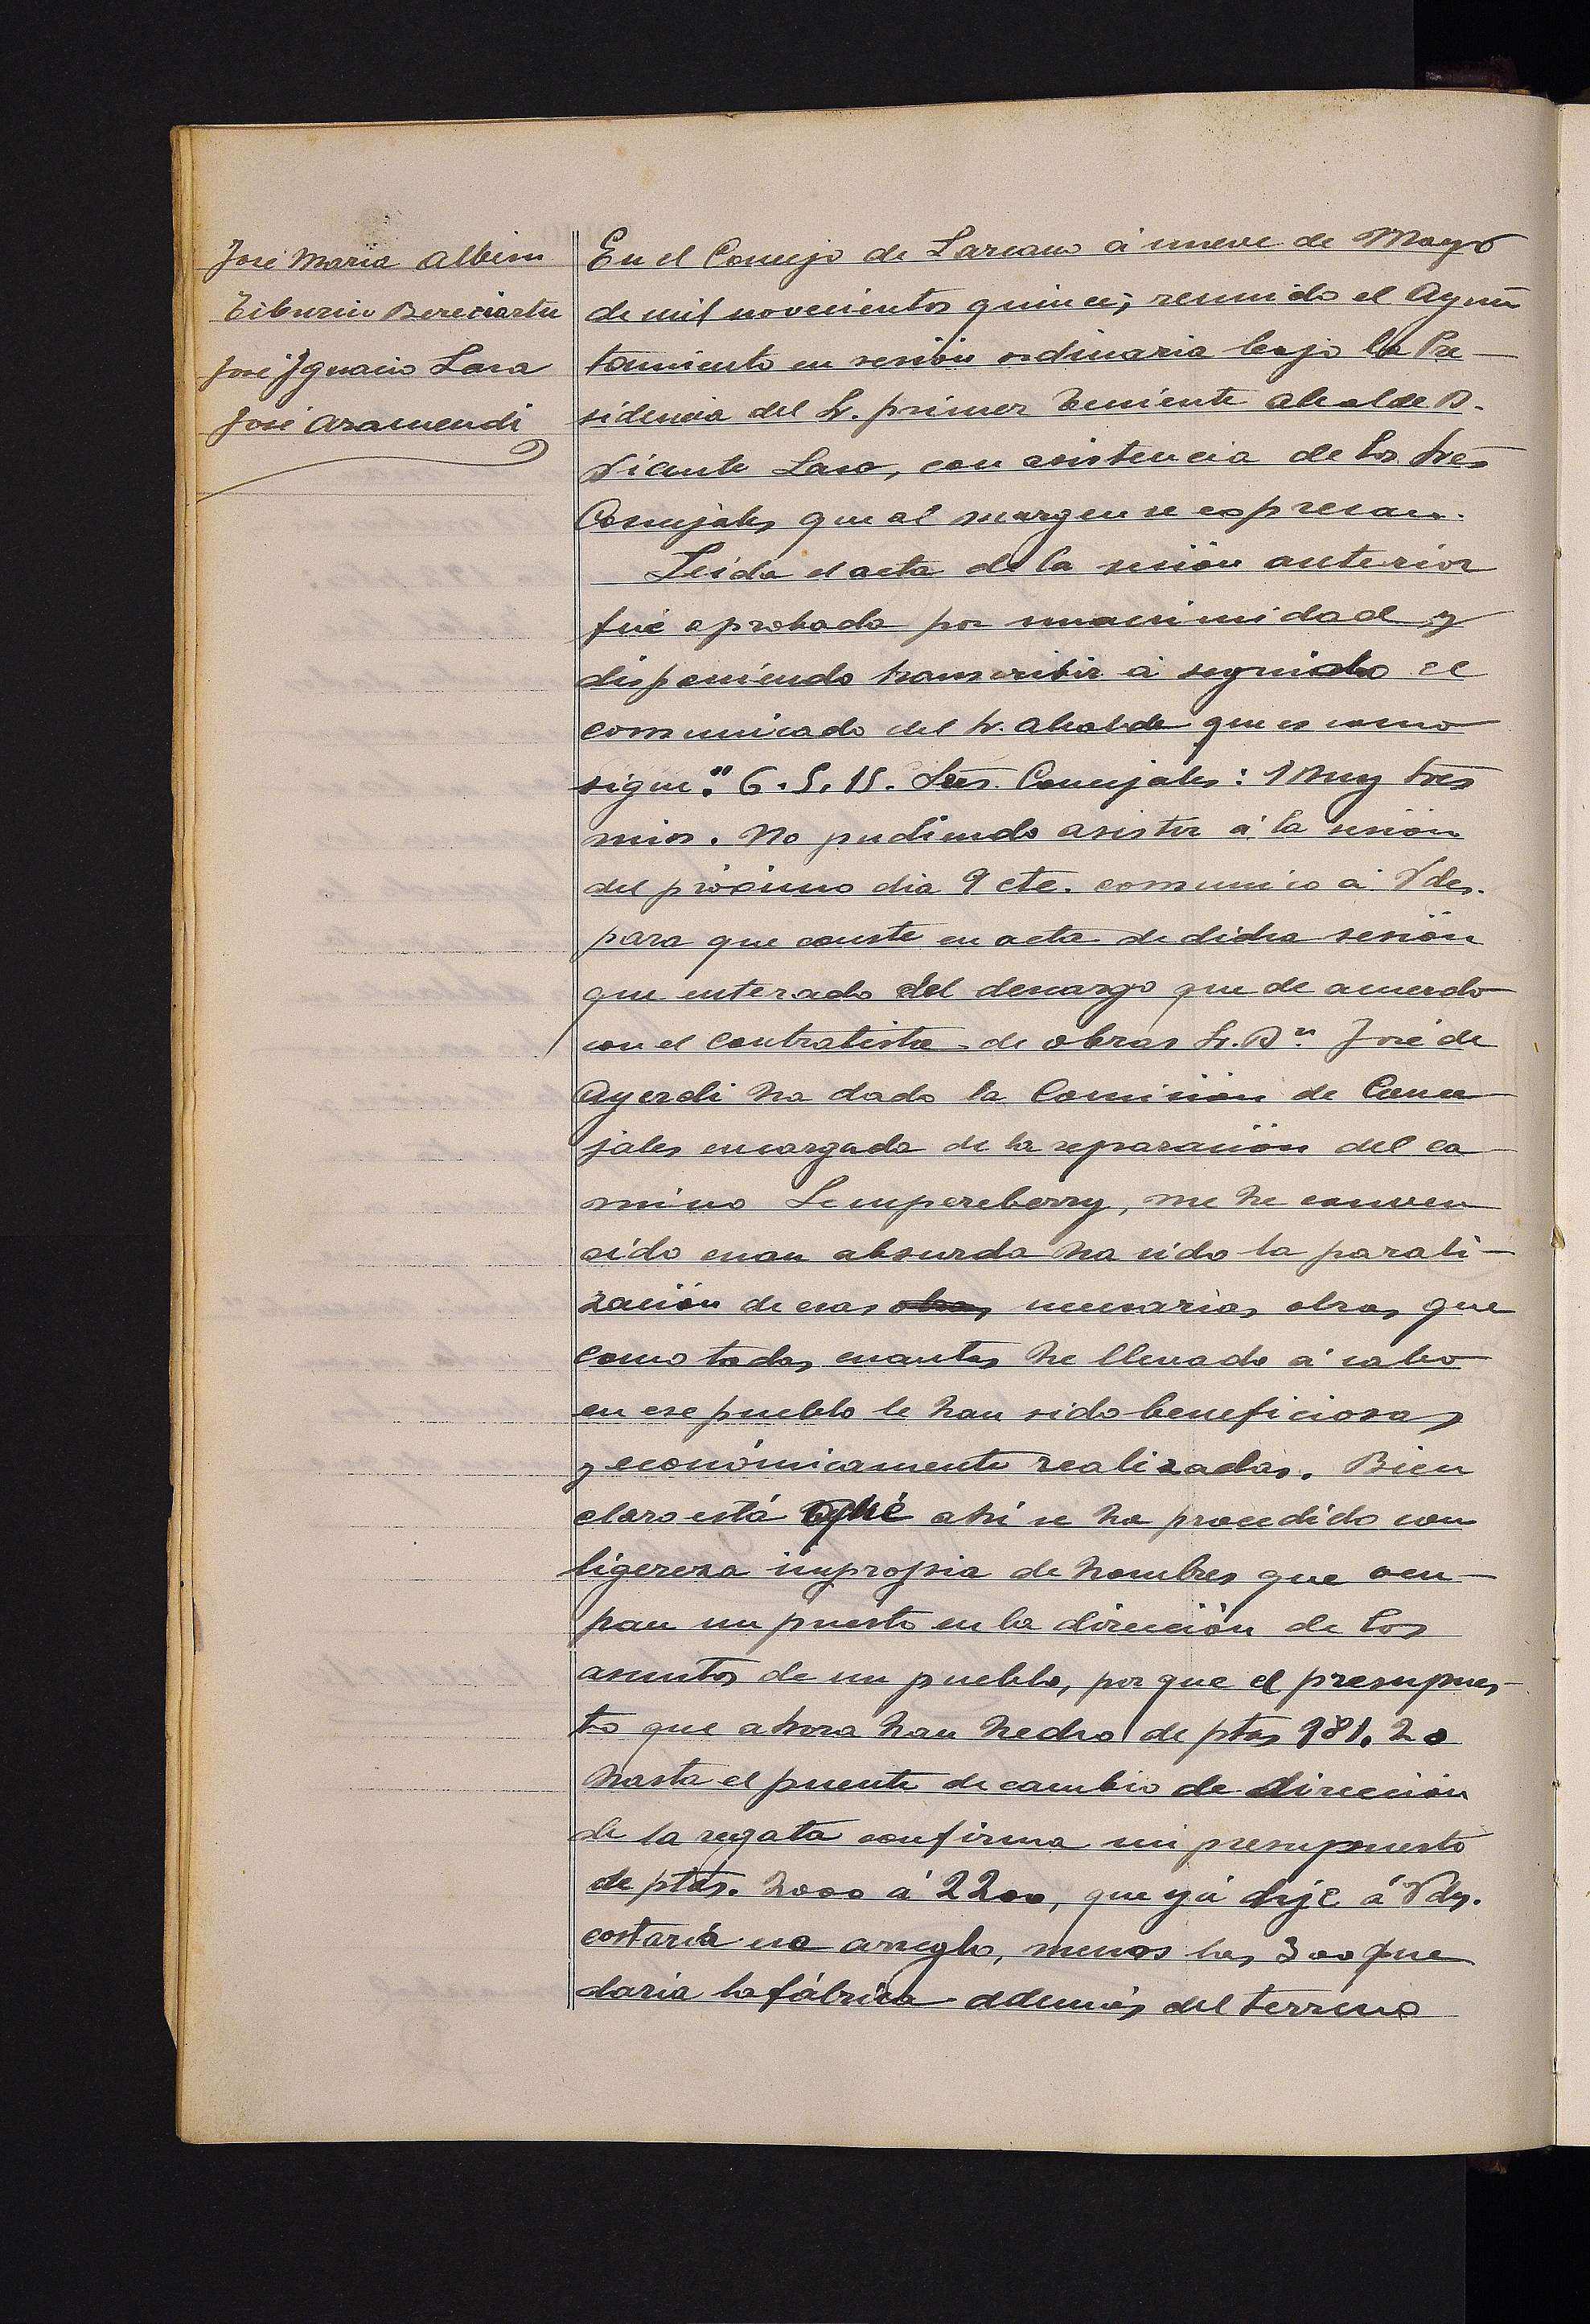 José Maria Albisu
Tiburcio Bereciartu
José Ignacio Lasa
José Aramendi
En el Concejo de Lazcano á nueve de Mayo
de mil novecientos quince; reunido el Ayun
tamiento en sesión ordinaria bajo la Pre-
sidencia del Sr. primer teniente alcalde D.
Vicente Lasa, con asistencia de los Sres
Concejales que al margen se expresan.
Leida el acta de la sesión anterior
fué aprobada por unanimidad y
disponiendo transcribir á seguida el
comunicado del Sr. Alcalde que es como
sigue:" 6. 5. 15. Sres. Concejales: Muy Sres
mios. No pudiendo asistir á la sesión
del próximo dia 9 cte. comunico á Vdes.
para que conste en acta de dicha sesión
que enterado del descargo que de acuerdo
con el contratista de obras Sr. Dn José de
Ayerdi ha dado la Comisión de Conce
jales encargada de la reparación del ca
mino Sempereberry, me he conven
cido cuan absurda ha sido la parali-
zación de esas obras necesarias obras, que
como todas cuantas he llevado á cabo
en ese pueblo le han sido beneficiosas
y económicamente realizadas. Bien
claro está que ahi se ha procedido con
ligereza impropia de hombres que ocu-
pan un puesto en la dirección de los
asuntos de un pueblo, por que el presupues-
to que ahora han hecho de ptas 981.20
hasta el puente de cambio de dirección
de la regata confirma mi presupuesto
de ptas. 2000 á 2200, que yá dije á Vdes.
costaría ese arreglo, menos las 300 que
daria la fábrica además del terreno